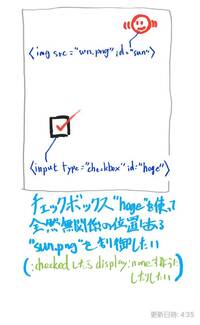 <img src="sun.png" id="sun">
<input type="checkbox" id="hoge">
チェックボックス"hoge"を使って
全然無関係の位置にある
"sun.png"を制御したい
(:checkedしたらdisplay:noneするようにしたりしたい)
更新日時: 4:35